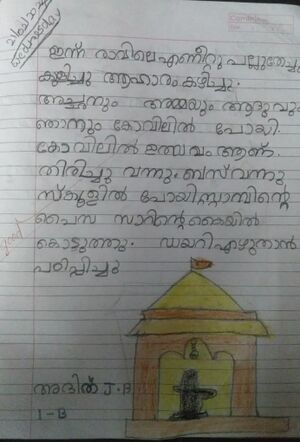 Wednesday
ഇന്ന് രാവിലെ എണീറ്റു പല്ലുതേച്ചു
കുളിച്ചു ആഹാരം കഴിച്ചു.
അച്ഛനും അമ്മയും ആദുവും
ഞാനും കോവിലിൽ പോയി.
കോവിലിൽ ഉത്സവം ആണ്.
തിരിച്ചു വന്നു. ബസ് വന്നു
സ്കൂളിൽ പോയി സ്റ്റാമ്പിന്റെ
പൈസ സാറിന്റെ കൈയിൽ
കൊടുത്തു. ഡയറി എഴുതാൻ
പഠിപ്പിച്ചു
good
അദിത് J.B
1-B